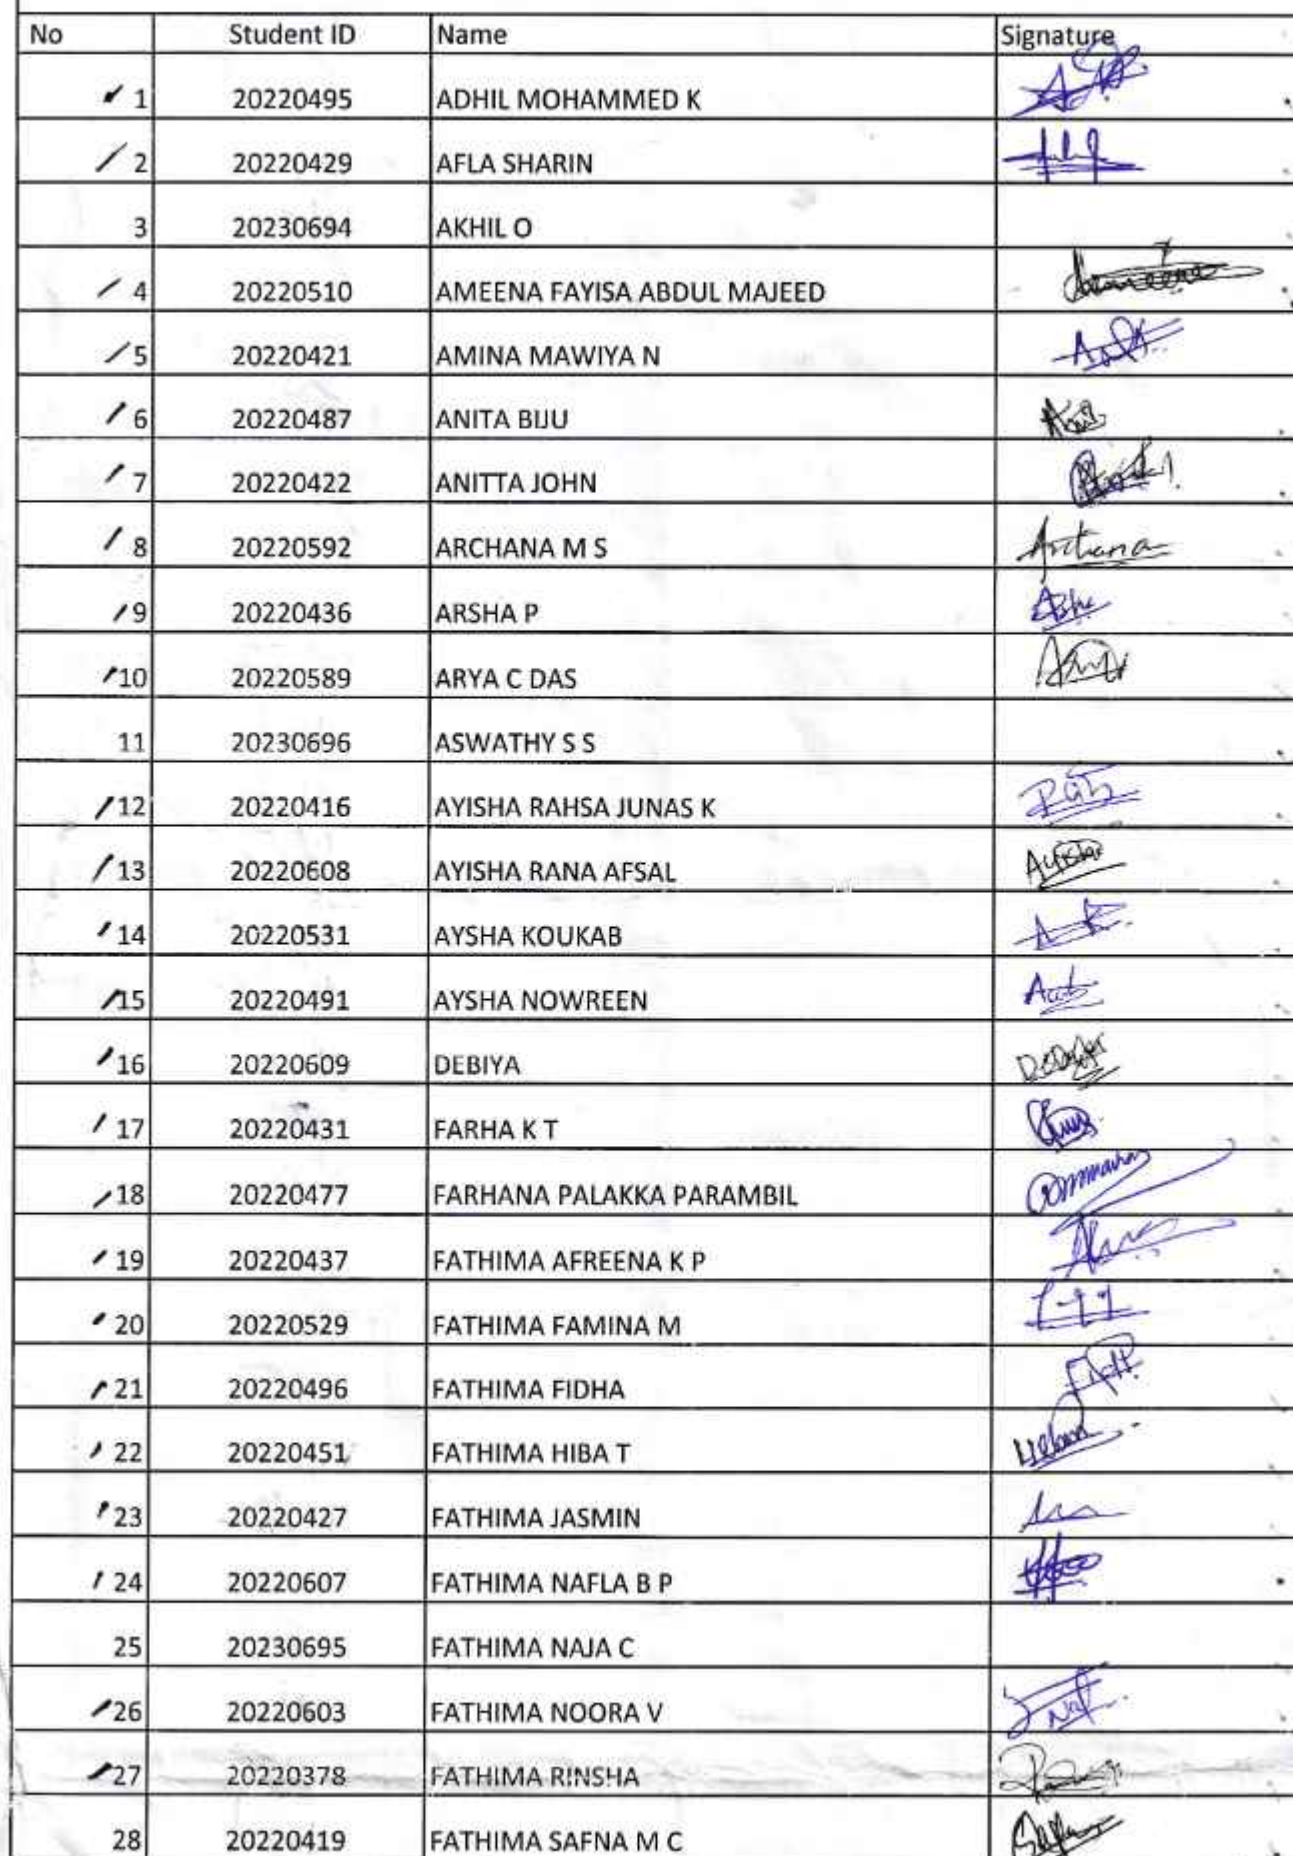 No Student ID Name Signature
1 20220495 ADHIL MOHAMMED K
2 20220429 AFLA SHARIN
3 20230694 AKHIL O
4 20220510 AMEENA FAYISA ABDUL MAJEED
5 20220421 AMINA MAWIYA N
6 20220487 ANITA BIJU
7 20220422 ANITTA JOHN
8 20220592 ARCHANA M S Archana
9 20220436 ARSHA P
10 20220589 ARYA C DAS
11 20230696 ASWATHY S S
12 20220416 AYISHA RAHSA JUNAS K
13 20220608 AYISHA RANA AFSAL
14 20220531 AYSHA KOUKAB
15 20220491 AYSHA NOWREEN
16 20220609 DEBIYA
17 20220431 FARHA K T
18 20220477 FARHANA PALAKKA PARAMBIL
19 20220437 FATHIMA AFREENA K P
20 20220529 FATHIMA FAMINA M
21 20220496 FATHIMA FIDHA
22 20220451 FATHIMA HIBA T
23 20220427 FATHIMA JASMIN
24 20220607 FATHIMA NAFLA B P
25 20230695 FATHIMA NAJA C
26 20220603 FATHIMA NOORA V
27 20220378 FATHIMA RINSHA
28 20220419 FATHIMA SAFNA M C